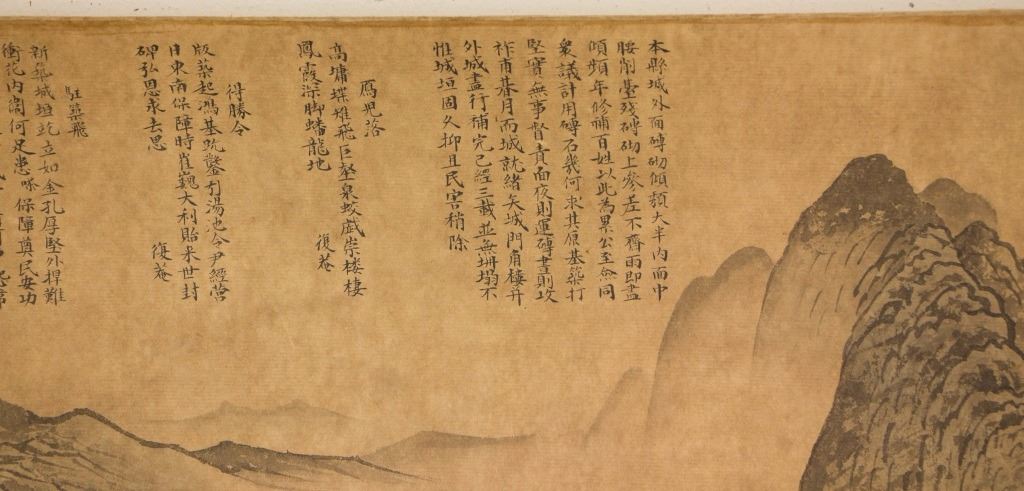 本縣城外面磚砌傾頹大半内面中
腰削壹殘磚砌上參差不齊雨即盡
傾頻年修補百姓以此為累公至僉同
衆議計用磚石幾何求其原基築打
堅實無事督責面夜則運磚晝則攻
祚甫朞月而城就緒矣城門角樓并
外城盡行補完已經三載並無坍塌不
惟城垣固久抑且民害稍除
鴈兒落
高墉堞雉飛巨壑泉蛟戲崇楼棲
鳳霞深脚蟠龍地
復菴
得勝令
版築起馮基既鑿引湯池今尹經營
日東南保障時崔巍大利貽来世封
碑弘恩永去思
復菴
駐築飛
新築城垣屹立如金孔厚堅外捍難
衝花内禦何足患嗏保障奠民安功